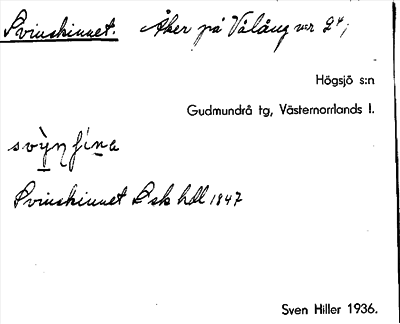 Svinskinnet. Åker på Vålång nr 2⁴,
Högsjö s:n
Gudmundrå tg, Västernorrlands l.
Svinskinnet Lsk hdl 1847
Sven Hiller 1936.